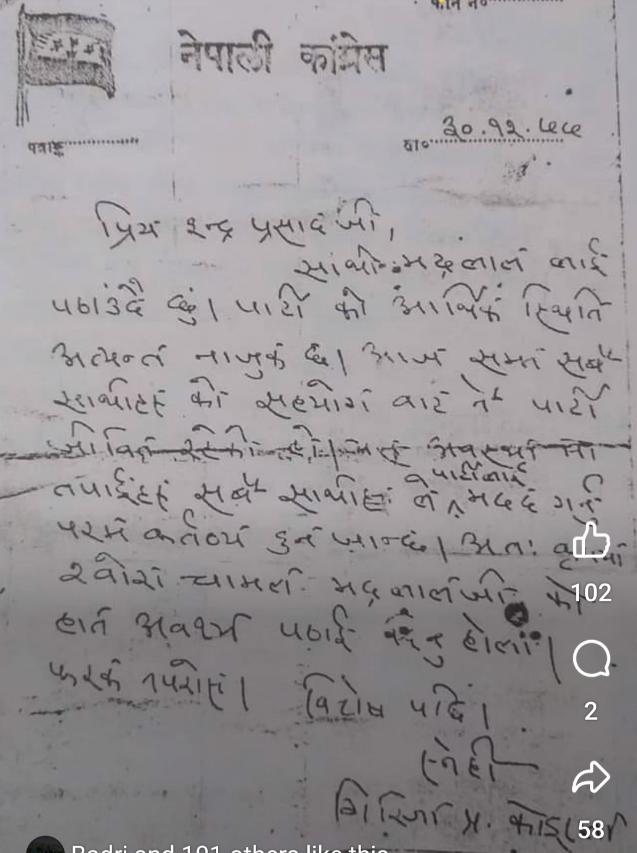 फोन नं०
नेपाली कांग्रेस
पत्राङ्क
ता० ३०.१२.५५
प्रिय इन्द्र प्रसाद जी,
साथी मद्रलाल लाई
पठाउँदै छु। पार्टी को आर्थिक स्थिति
अत्यन्त नाजुक छ। आज सम्म सबै
साथीहरु को सहयोग वाट नै पार्टी
जीवित रहेको हो। यस अवस्था मा
तपाईंहरु सबै साथीहरु ले पार्टीलाई मद्दद गर्नु
परम कर्तव्य हुन जान्छ। अतः
२ वोरा चामल मद्रलालजी को
हात अवश्य पठाई दिनु होला।
फरक नपरोस्। विशेष पछि।
स्नेही
गिरिजा प्र. कोइराला
102
2
58
Badri and 101 others like this